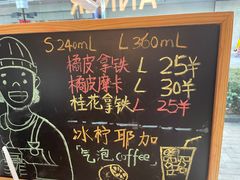 S 240mL L 360mL
橘皮拿铁 L 25¥
橘皮摩卡 L 30¥
桂花拿铁 L 25¥
冰柠耶加
「气泡coffee」